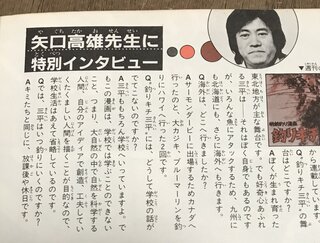 矢口高雄先生に
特別インタビュー
▼週刊少
から連載しています
Q釣りキチ三平の舞
台はどこですか？
Aぼくが生まれ育った
東北地方が主な舞台です。でも好奇心あふれ
る三平は——それはぼく自身でもあるのです
が、いろんな魚にアタックするため、九州に
も北海道にも、さらに海外へも行きます。
Q海外は、どこへ行きましたか？
Aサーモンダービーに出場するためカナダへ
行ったのと、大カジキ、ブルーマーリンを釣
りにハワイへ行った2回です。
Q「釣りキチ三平」には、どうして学校の話が
でてこないのですか？
A三平ももちろん学校へいってますよ。で
もこの漫画は、学校では学ぶことのできない
こと、つまり、大自然の中で自然を科学する
人間、自分のアイディアで創造、工夫してい
くたくましい人間を描くことが目的なので、
学校生活はあえて省略しているのです。
Qでは、三平はいつ釣りにいくのですか？
Aキミたちと同じに、放課後や休日です。